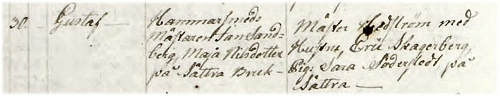 30. Gustaf —
Hammarsmeds
Mästaren Jan Sand-
berg, Maja Nilsdotter
på Sättra Bruk —
Mäster Hedström med
Hustru, Eric Skagerberg,
Pig: Sara Söderstedt på
Sättra —